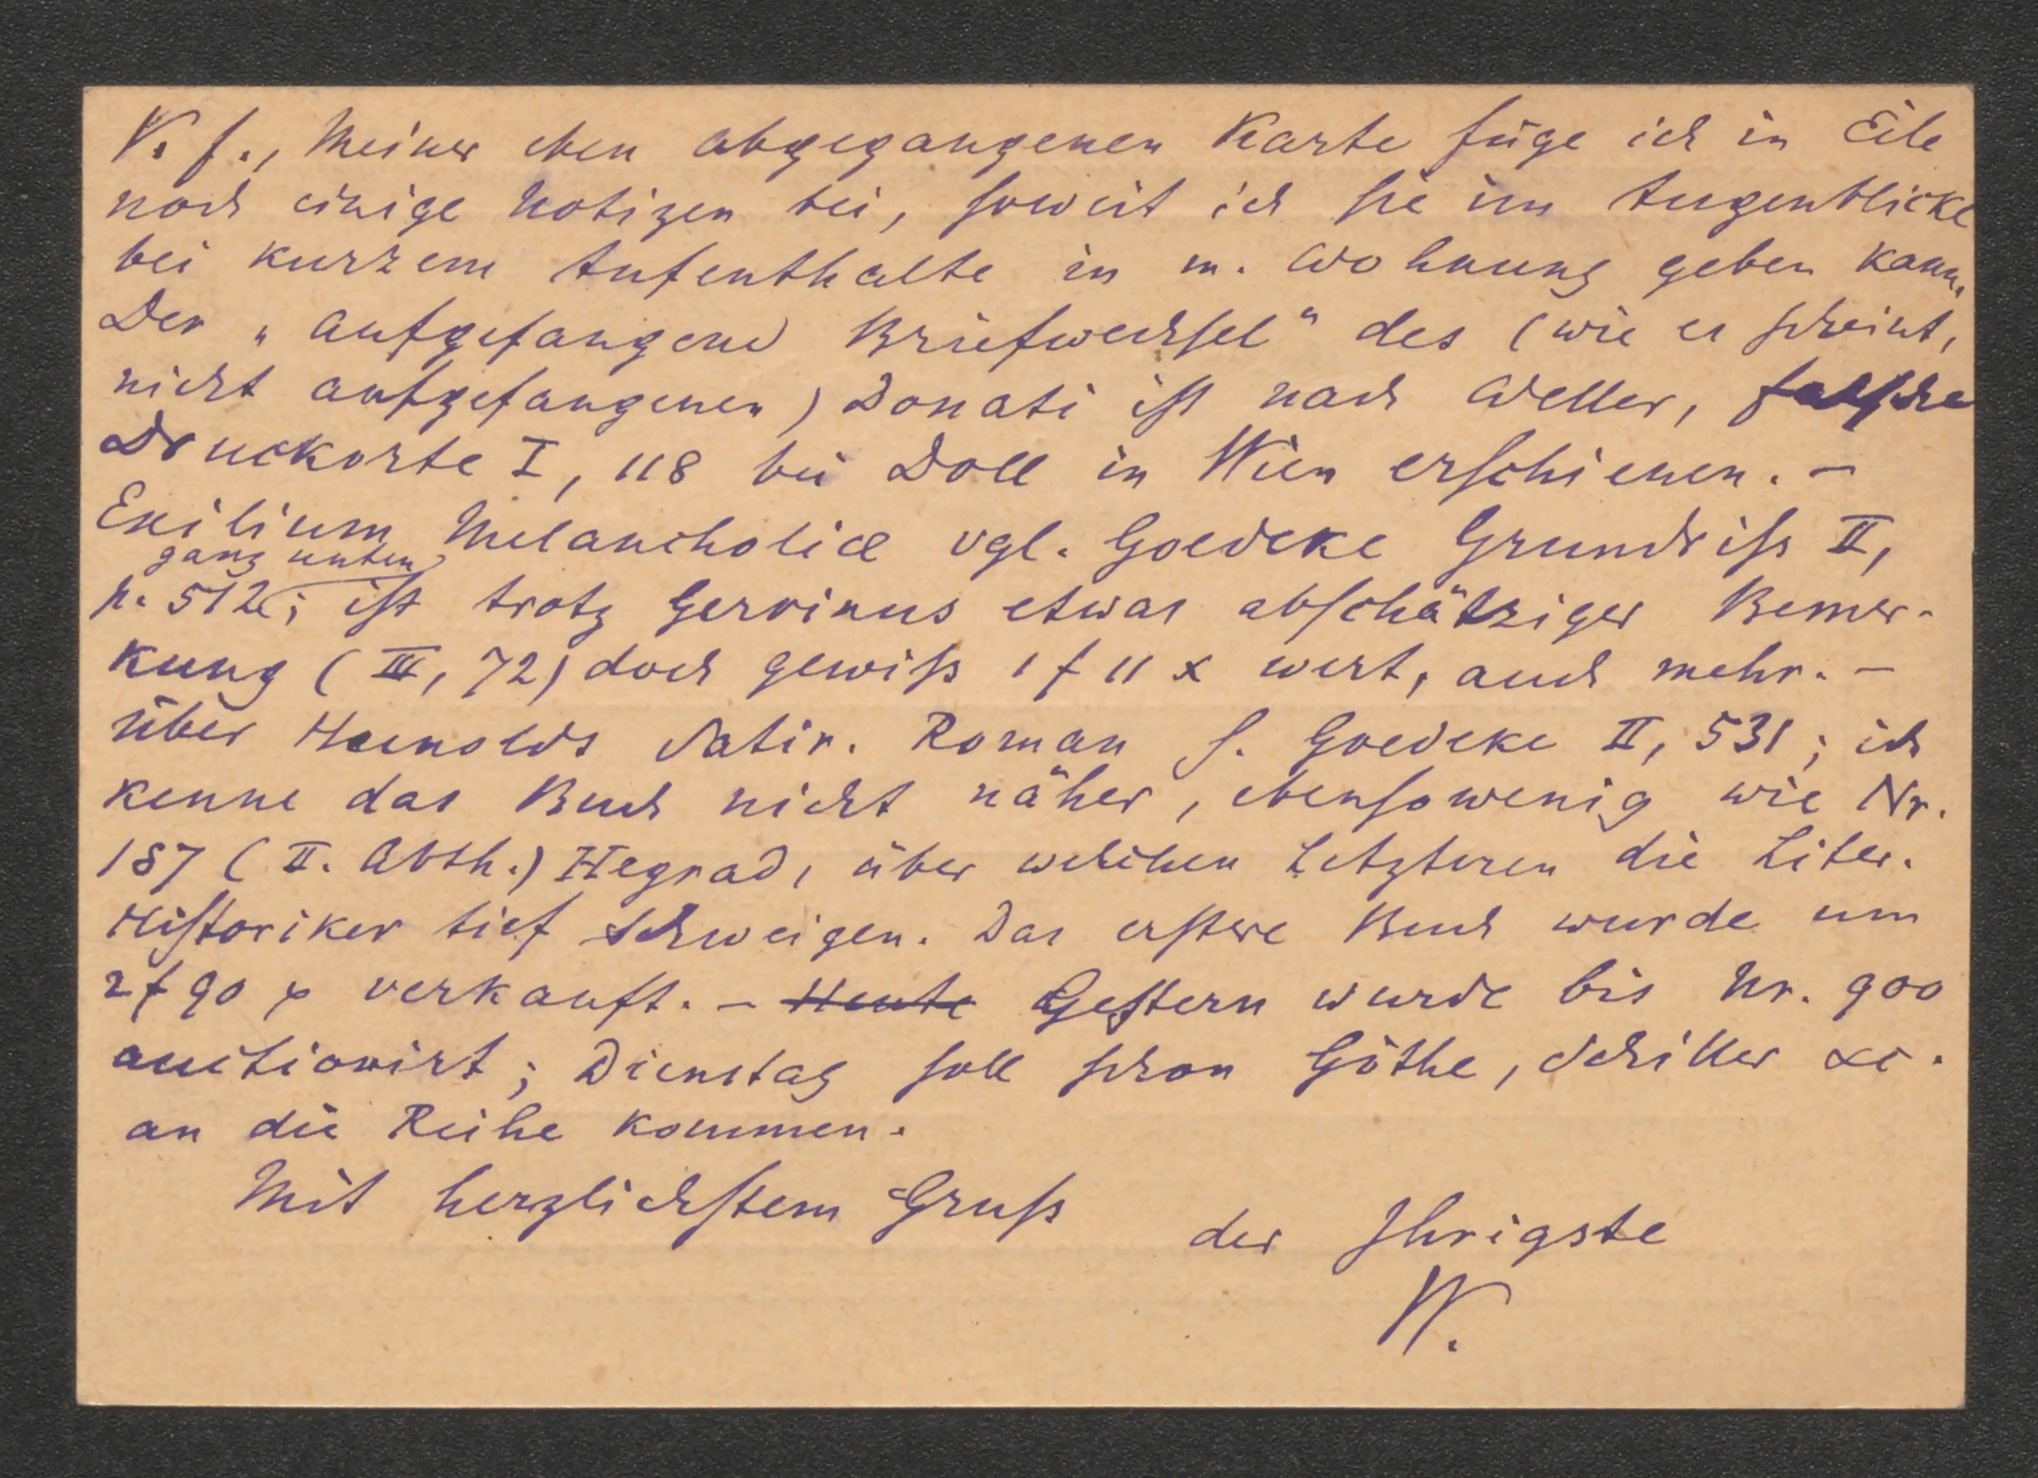 V. f., Meiner eben abgegangenen Karte füge ich in Eile
noch einige Notizen bei, soweit ich sie im Augenblicke
bei kurzem Aufenthalte in m. Wohnung geben kann.
Der „aufgefangene Briefwechsel" des (wie es scheint,
nicht aufgefangenen) Donati ist nach Weller, falsche
Druckorte I, 118 bei Doll in Wien erschienen. –
Exilium Melancholiæ vgl. Goedeke Grundriss II,
ganz unten
p. 512; ist trotz Gervinus etwas abschätziger Bemer-
kung (III, 72) doch gewiss 1 f 11 x wert, auch mehr. –
über Hunolds Satir. Roman s. Goedeke II, 531; ich
kenne das Buch nicht näher, ebensowenig wie Nr.
187 (II. Abth.) Hegrad, über welchen Letzteren die Liter.
Historiker tief schweigen. Das erstere Buch wurde um
2 f 90 x verkauft. – Heute Gestern wurde bis Nr. 900
auctionirt; Dienstag soll schon Göthe, Schiller &c.
an die Reihe kommen.
Mit herzlichstem Gruss
der Ihrigste
W.